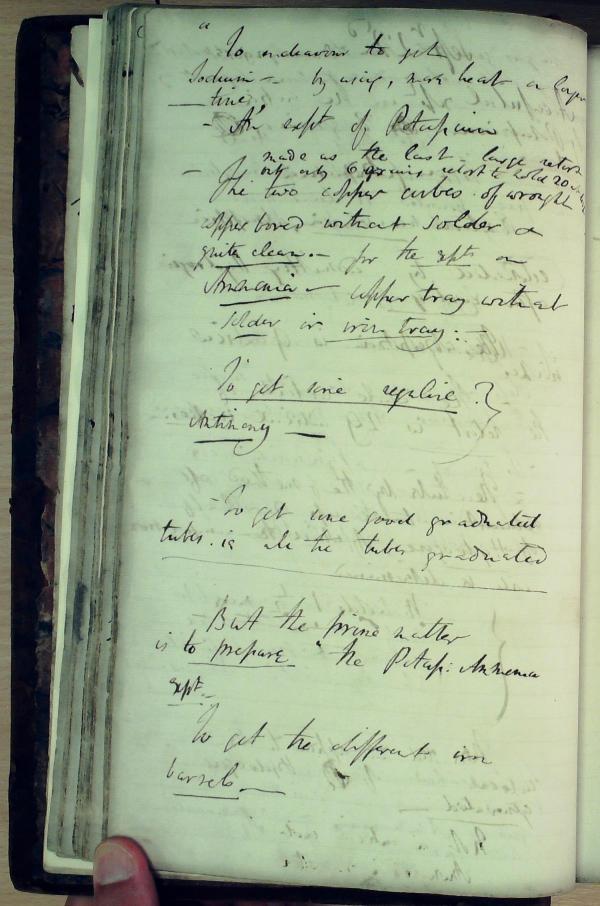 To endeavour to get
Sodium - by using, more heat or longer
time
- An expt of Potassium
made as the last - large retort
only 6 grains, retort to hold 20
- The two copper cubes of wrought
copper bored without solder or
quite clean. - for the expts on
Ammonia - copper tray without
solder or iron tray: -
To get some regaline ?
Antimony -
- To get some good graduated
tubes. ie all the tubes graduated
But the prime matter
is to prepare the Potass: Ammonia
expt. -
To get the different iron
barrels. -